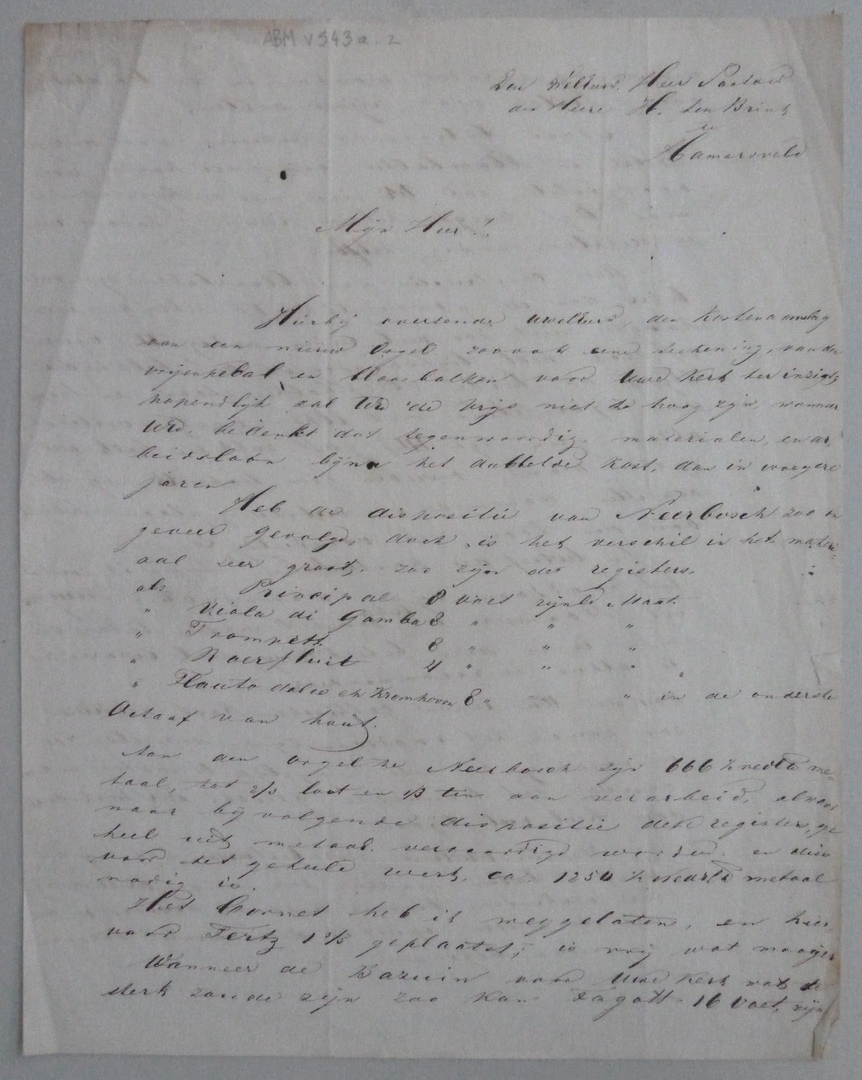 ABM v 543 a. 2
Den WelEerw. Heer Pastoor
den Heere H. ten Brink
te
Hamersveld
Mijn Heer!
Hierbij overzende UwelEerw. den kosten aanslag
van een nieuw Orgel zoowel eene teekening van den
vrijenpedal en blaasbalken voor Uwe Kerk ter inzigt,
hopendlijk zal UEd de prijs niet te hoog zijn, wanneer
UEd. bedenkt dat tegenwoordig materialen, en ar
beidsloon bijna het dubbelde kost, dan in vroegere
jaren
Heb de dispositie van Neerbosch zoo on
geveer gevolgd, doch is het verschil in het mater-
aal zeer groot, zoo zijn de registers
als Principal 8 voet rijnl. Maat.
" Viola di Gamba 8 " " "
" Trompett 8 " " "
" Roerfluit 4 " " "
" Flauto dolce en Kromhoorn 8 " " in de onderste
Octaaf van hout.
Aan den orgel te Neerbosch zijn 666 me-
taal, tot 2/3 loot en 1/3 tin aan verarbeid, alwaar
naar bijvolgende dispositie deze register, ge
heel uit metaal vervaardigd worden en dien
voor het geheele werk, ca 1250 metaal
nodig is.
Het Cornet heb ik weggelaten, en hier
voor Tertz 1 3/5 geplaatst, is vrij wat
Wanneer de Bazuin voor Uwe Kerk wat te
sterk zoude zijn zoo kan Fagott 16 voet, zijn